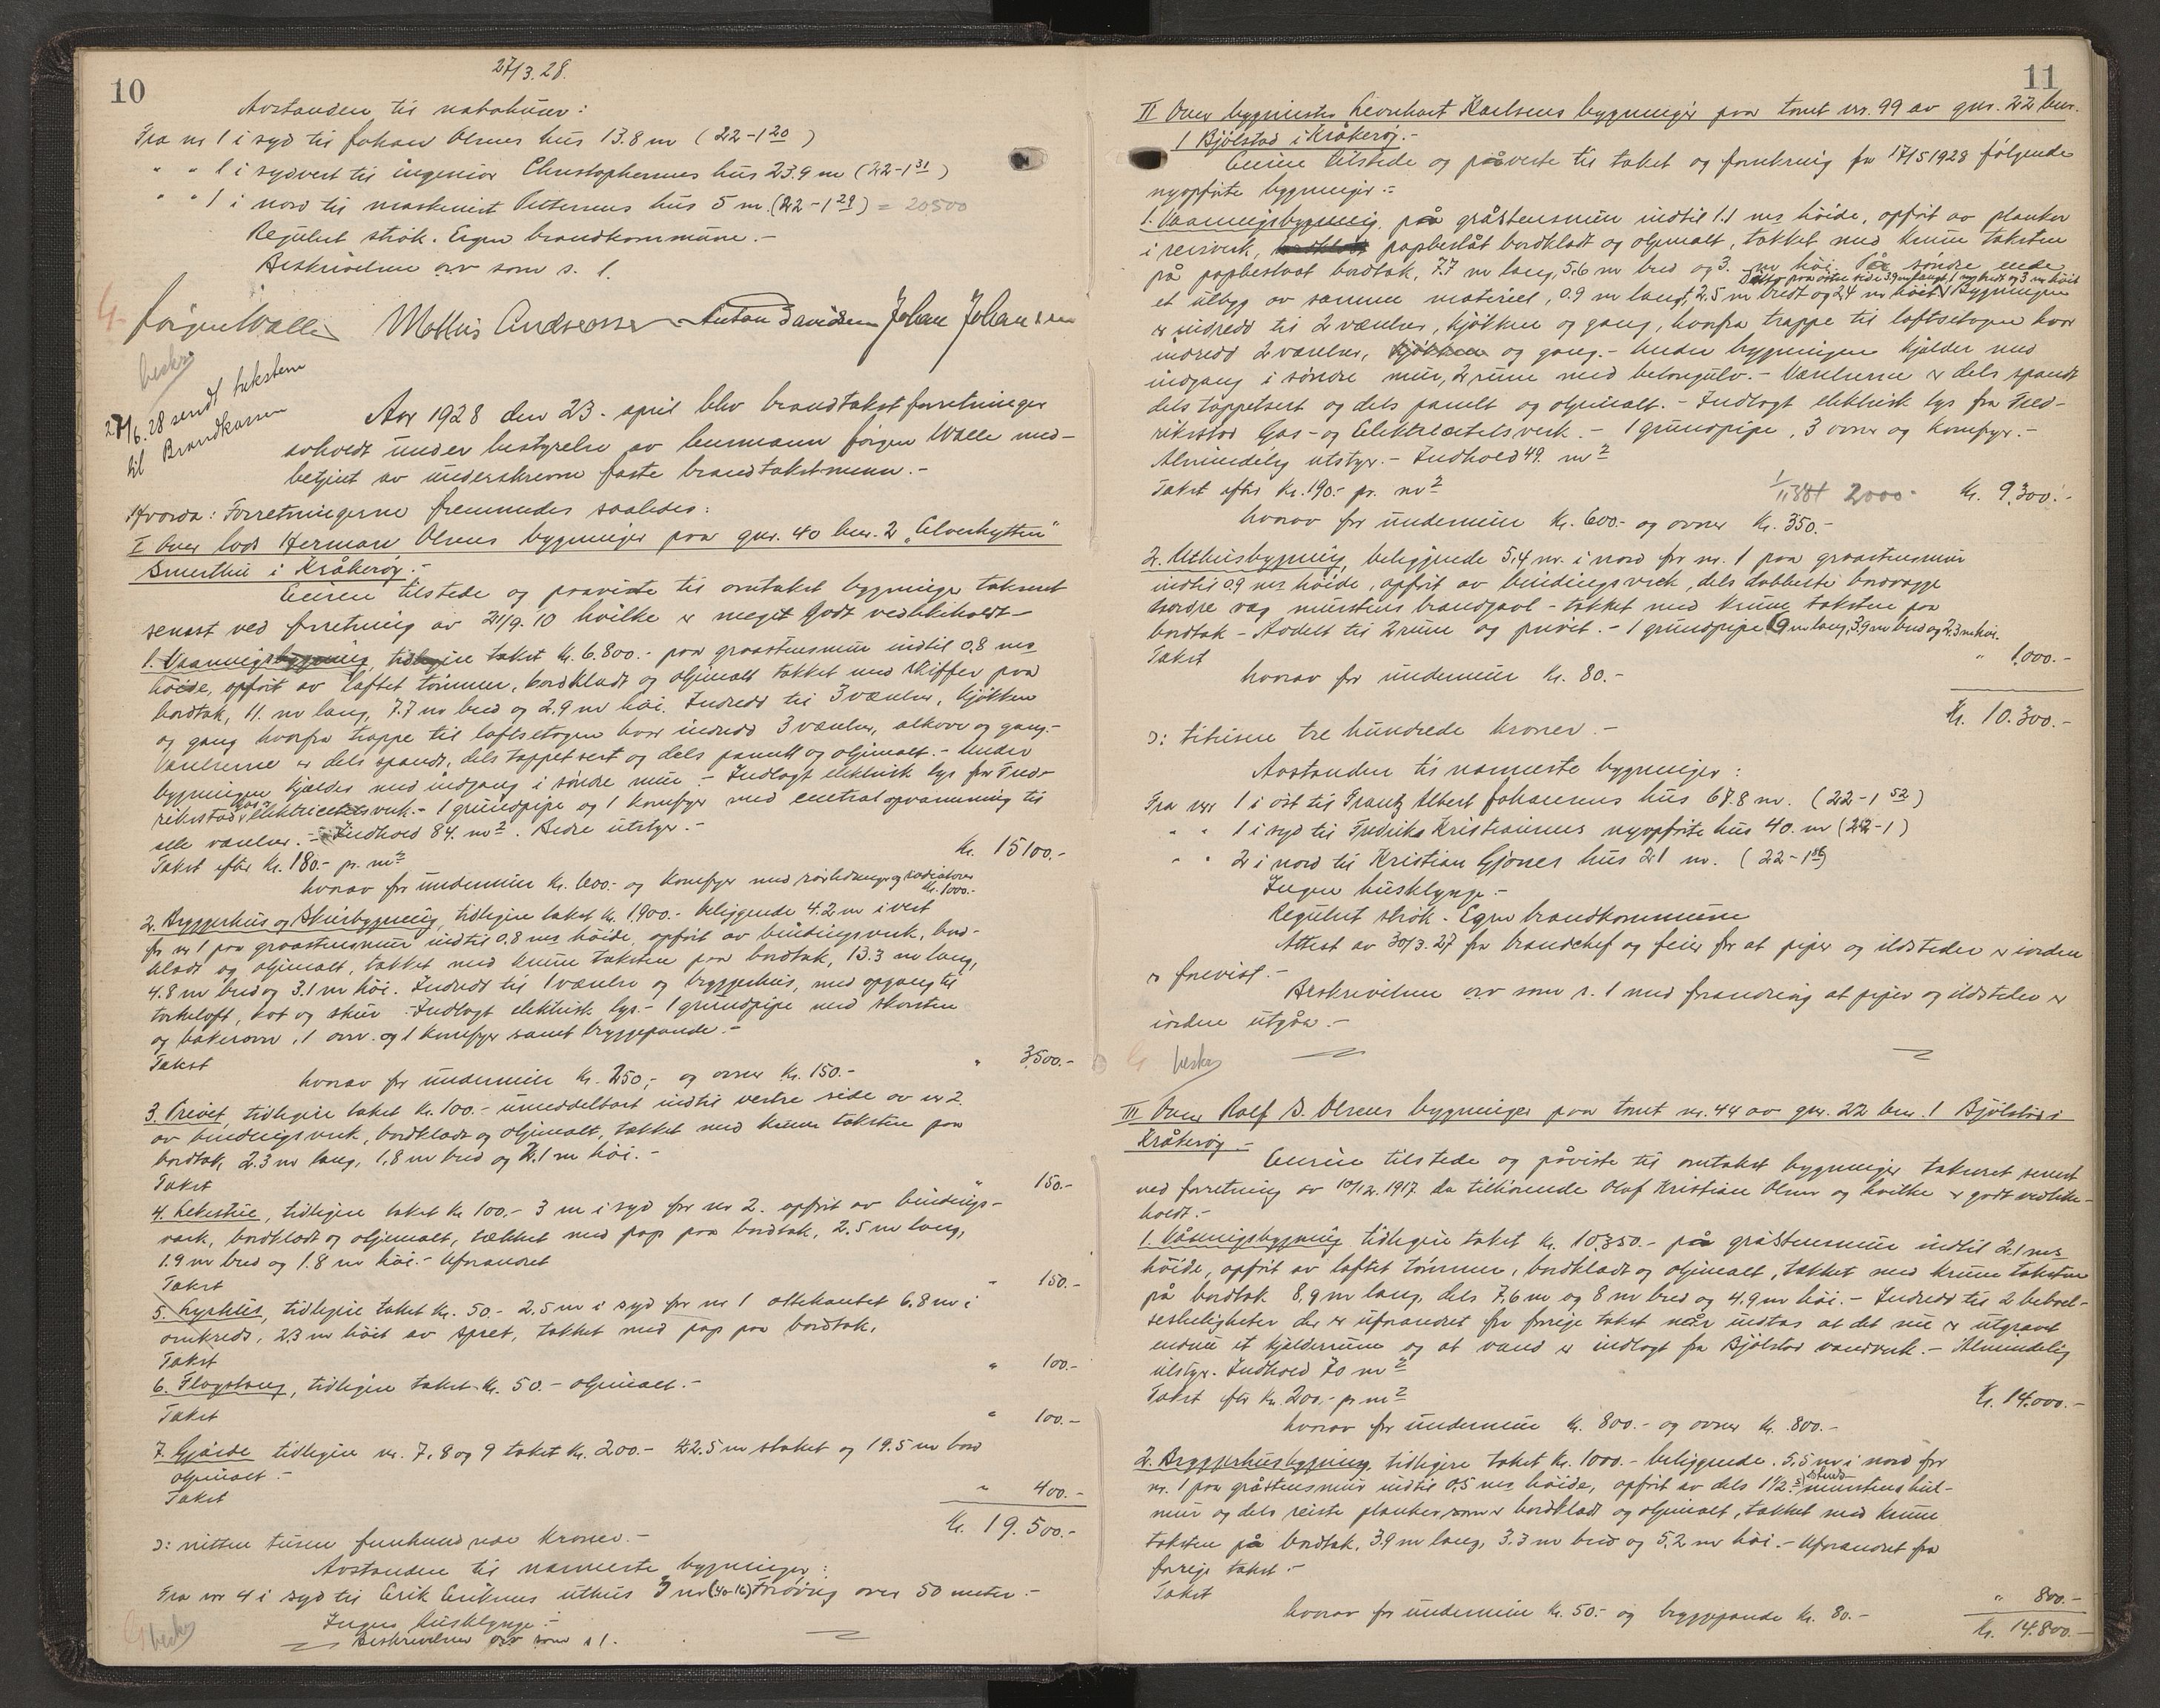 10
27/3.28.
Avstanden til nabohuse:
Fra nr 1 i syd til Johan Olsens hus 13.8 m (22-1 20)
" " 1 i sydvest til ingeniør Christophersens hus 23.9 m (22-1 31)
" " 1 i nord til maskinist Pettersens hus 5 m. (22-1 29) = 20500
Regulert strøk. Egen brandkommune.-
Beskrivelsen orv som s. 1.
Jørgen Walle Mathis Andreassen Anton Davidsen Johan Johansen
besk
27/6.28 sendt taksten
til Brandkassen
Aar 1928 den 23. april blev brandtakstforretninger
avholdt under bestyrelse av lensmann Jørgen Walle med-
betjent av underskrevne faste brandtakstmenn.-
Hvorda: Forretningerne fremmedes saaledes:
I Over lods Herman Olsens bygninger paa gnr. 40 bnr. 2 "Elvenhytten"
Smerthu i Kråkerøy.-
Eieren tilstede og paaviste til omtakst bygninger takseret
senest ved forretning av 21/9.10 hvilke er meget godt vedlikeholdt
1. Vaaningsbygning, tidligere takst Kr. 6.800.- paa graastensmur indtil 0.8 ms
høide, opført av laftet tømmer, bordklædt og oljemalt tækket med skiffer paa
bordtak, 11. m lang, 7.7 m bred og 2.9 m høi. Indredt til 3 værelser, kjøkken
og gang hvorfra trappe til loftsetagen hvor indredd 3 værelser, alkove og gang.-
Værelserne er dels spændt, dels tappetsert og dels panelt og oljemalt.- Under
bygningen kjælder med indgang i søndre mur.- Indlagt elektrisk lys fra Fred-
rikstad Gas- & elektricitetsverk.- 1 grundpipe og 1 komfyr med centralopvarmning til
alle værelser.- Indhold 84. m2. Bedre utstyr.-
Takst efter Kr. 180.- pr. m2 Kr. 15100.-
hvorav for undermur Kr. 600.- og komfyr med rørledninger og radiatorer
Kr. 1000.-
2. Bryggerhus og skursbygning, tidligere takst Kr. 1.900.- beliggende 4.2 m i vest
for nr 1 paa graastensmur indtil 0.8 ms høide, opført av bindingsverk, bord-
klædt og oljemalt, tækket med krum taksten paa bordtak, 13.3 m lang,
4.8 m bred og 3.1 m høi. Indredt til 1 værelse og bryggerhus, med opgang til
tørkeloft, bod og skur. Indlagt elektrisk lys.- 1 grundpipe med skorsten
og bakerovn, 1 ovn. og 1 komfyr samt bryggepande.-
Takst " 3500.-
hvorav for undermur Kr. 250,- og ovner Kr. 150.-
3. Privet, tidligere takst Kr. 100.- umiddelbart indtil vestre side av nr 2
av bindingsverk, bordklædt og oljemalt, tækket med krum taksten paa
bordtak, 2.3 m lang, 1,8 m bred og 2.1 m høi.-
Takst " 150.-
4. Lekestue, tidligere takst Kr 100.- 3 m i syd for nr 2. opført av bindings-
verk, bordklædt og oljemalt, tækket med pap paa bordtak, 2.5 m lang,
1.9 m bred og 1.8 m høi.- Uforandret
Takst " 150.-
5. Lysthus, tidligere takst Kr. 50.- 2.5 m i syd for nr 1 ottekantet 6.8 m i
omkreds, 2.3 m høit av spret, tækket med pap paa bordtak.
Takst " 100.-
6. Flagstang, tidligere takst Kr. 50.- oljemalt.-
Takst " 100.-
7. Gjærde tidligere nr. 7, 8 og 9 takst Kr. 200.- 42.5 m staket og 19.5 m bord
oljemalt.-
Takst " 400.-
Kr. 19.500.-
ɔ: nitten tusen femhundrede kroner.-
Avstanden til nærmeste bygninger:
Fra nr 4 i syd til Erik Eriksens uthus 3 m (40-16) Forøvrig over 50 meter.-
Ingen husklynge.-
Beskrivelsen orv som s 1.
besk
11
II Over bygmester Leonhart Karlsens bygninger paa tomt nr. 99 av gnr. 22 bnr.
1 Bjölstad i Kråkerøy.-
Eieren tilstede og påviste til takst og forsikring fra 17/5 1928 følgende
nyopførte bygninger:-
1. Vaaningsbygning, på gråstensmur indtil 1.1 ms høide, opført av planker
i reisverk, papbeslåt bordklædt og oljemalt, tækket med krum taksten
på papbeslaat bordtak, 7.7 m lang, 5.6 m bred og 3. m høi. På søndre ende
Ditto paa østre side 3.9 m langt, 1 m bredt og 3 m høit
et utbygg av samme materiel, 0.9 m langt, 2.5 m bredt og 2.4 m høit. Bygningen
er indredd til 2 værelser, kjøkken og gang, hvorfra trappe til loftsetagen hvor
indredd 2 værelser, kjøkken og gang.- Under bygningen kjelder med
indgang i søndre mur, 2 rum med betongulv.- Værelserne er dels spændt
dels tappetsert og dels panelt og oljemalt.- Indlagt elektrisk lys fra Fred-
rikstad Gas- og Elektricitetsverk.- 1 grundpipe, 3 ovner og komfyr.-
Almindelig utstyr.- Indhold 49. m2
Takst efter Kr. 190.- pr. m2 2000- Kr. 9.300.-
hvorav for undermur Kr. 600.- og ovner Kr. 350.-
2. Uthusbygning, beliggende 5,4 m. i nord for nr. 1 paa graastensmur
indtil 0.9 ms høide, opført av bindingsverk, dels dobbelte bordvægge
nordre væg murstens brandgavl - tækket med krum taksten paa
bordtak - Avdelt til 2 rum og privet.- 1 grundpipe 6.9 m lang, 3.9 m bred og 2.3 m høi.
Takst " 1,000.-
hvorav for undermur Kr. 80.-
Kr. 10.300.-
ɔ: titusen tre hundrede kroner.-
Avstanden til nærmeste bygninger:
Fra nr 1 i øst til Frantz Albert Johansens hus 67.8 m. (22-1 52)
" " 1 i syd til Fredrik Kristiansens nyopførte hus 40. m (22-1)
" " 2 i nord til Kristian Gjønes hus 21 m. (22-1 86)
Ingen husklynge.-
Regulert strøk.- Egen brandkommune
Attest av 30/3.27 fra brandchef og feier for at piper og ildsteder er iorden
er forevist.-
Beskrivelsen orv som s. 1 med forandring at piper og ildsteder er
iorden utgåa.-
besk
III Over Rolf S. Olsens bygninger paa tomt nr. 44 av gnr. 22 bnr. 1 Bjölstad i
Kråkerøy.-
Eieren tilstede og påviste til omtakst bygninger takseret senest
ved forretning av 10/12.1917 da tilhørende Olaf Kristian Olsen og hvilke er godt vedlike-
holdt.-
1. Våningsbygning tidligere takst Kr. 10.350.- på gråstensmur indtil 2.1 ms
høide, opført av laftet tømmer, bordklædt og oljemalt, tækket med krum taksten
på bordtak 8.9 m lang, dels 7,6 m og 8 m bred og 4.9 m høi.- Indredt til 2 beboel-
sesleiligheter der er uforandret fra forrige takst når undtas at det nu er utgravet
endnu et kjælderrum og at vand er indlagt fra Bjölstad vandverk.- Almindelig
utstyr. Indhold 70 m2
Takst efter Kr. 200.- pr m2 Kr. 14.000.-
hvorav for undermur Kr. 800.- og ovner Kr. 800.-
2. Bryggerhusbygning, tidligere takst Kr. 1000.- beliggende 5,5 m i nord for
nr. 1 paa gråstensmur indtil 0,5 ms høide, opført av dels 1 1/2 stens murstens hul-
mur og dels reiste planker som er bordklædt og oljemalt, tækket med krum
taksten på bordtak, 3.9 m lang, 3.3 m bred og 5.2 m høi.- Uforandret fra
forrige takst.-
Takst " 800.-
hvorav for undermur Kr. 50.- og bryggepande Kr. 80.-
Kr. 14.800.-